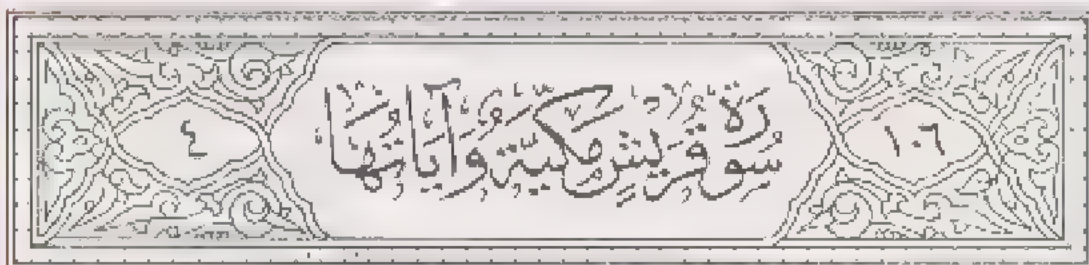 ١٠٦ سُورَةُ قُرَيْشٍ مَكِّيَّةٌ وَآيَاتُهَا ٤